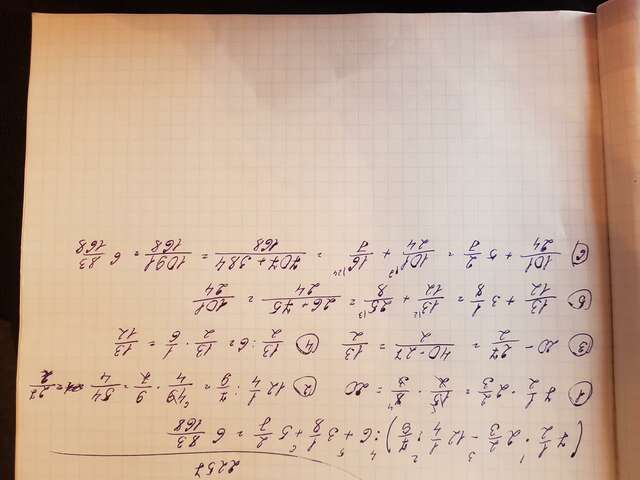 2257
(7 1/2 · 2 2/3 - 12 1/4 : 7/9) : 6 + 3 1/8 + 5 2/7 = 6 83/168
① 7 1/2 · 2 2/3 = 15/2 · 8/3 = 20 ② 12 1/4 : 7/9 = 49/4 · 9/7 = 54/4 = 27/2
③ 20 - 27/2 = 40-27/2 = 13/2 ④ 13/2 : 6 = 13/2 · 1/6 = 13/12
⑤ 13/12 + 3 1/8 = 13/12 + 25/8 = 26+75/24 = 101/24
⑥ 101/24 + 5 2/7 = 101/24 + 16/7 = 707+384/168 = 1091/168 = 6 83/168